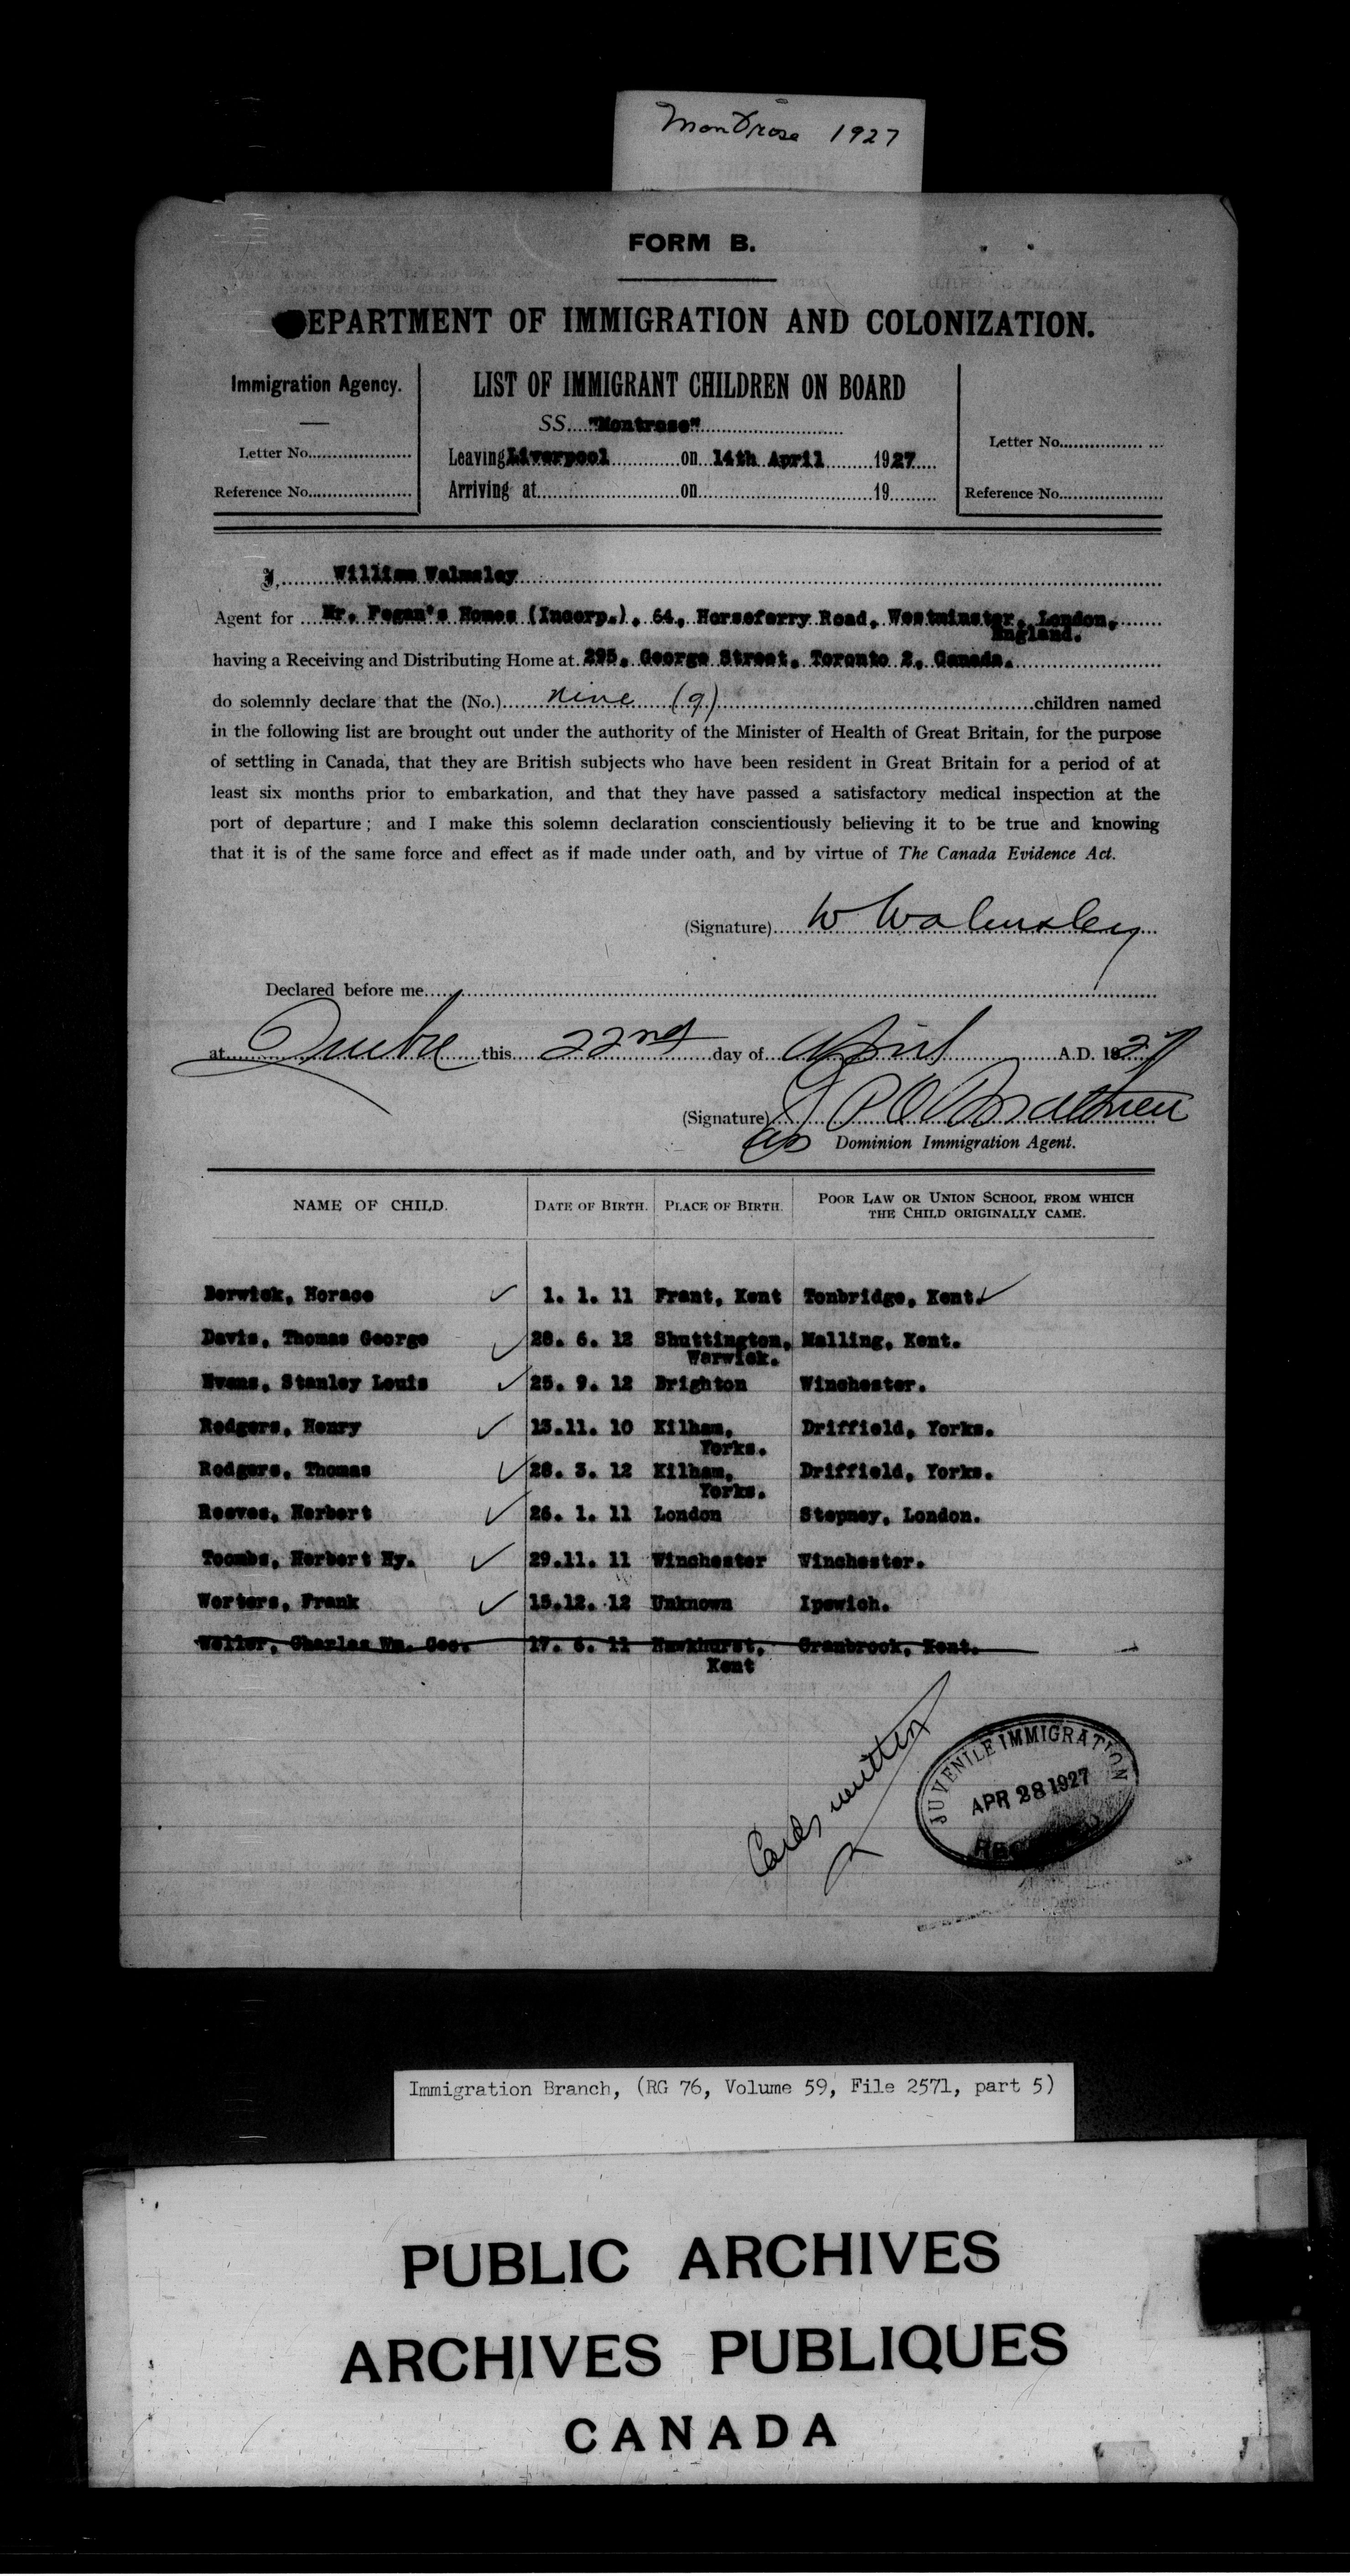 Montrose 1927
FORM B.
DEPARTMENT OF IMMIGRATION AND COLONIZATION.
Immigration Agency.
Letter No.
Reference No.
LIST OF IMMIGRANT CHILDREN ON BOARD
SS. "Montrose"
Leaving Liverpool on 14th April 1927
Arriving at on 19
Letter No.
Reference No.
I, William Walmsley
Agent for Mr. Fegan's Homes (Incorp.), 64, Horseferry Road, Westminster, London,
England.
having a Receiving and Distributing Home at 295, George Street, Toronto 2, Canada.
do solemnly declare that the (No.) nine (9) children named
in the following list are brought out under the authority of the Minister of Health of Great Britain, for the purpose
of settling in Canada, that they are British subjects who have been resident in Great Britain for a period of at
least six months prior to embarkation, and that they have passed a satisfactory medical inspection at the
port of departure; and I make this solemn declaration conscientiously believing it to be true and knowing
that it is of the same force and effect as if made under oath, and by virtue of The Canada Evidence Act.
(Signature) W Walmsley
Declared before me
at Quebec this 22nd day of April A.D. 1927
(Signature)
Dominion Immigration Agent.
NAME OF CHILD. DATE OF BIRTH. PLACE OF BIRTH. POOR LAW OR UNION SCHOOL FROM WHICH
THE CHILD ORIGINALLY CAME.
Berwick, Horace ✓ 1. 1. 11 Frant, Kent Tonbridge, Kent. ✓
Davis, Thomas George ✓ 28. 6. 12 Shuttington, Malling, Kent.
Warwick.
Evans, Stanley Louis ✓ 25. 9. 12 Brighton Winchester.
Rodgers, Henry ✓ 13.11. 10 Kilham, Driffield, Yorks.
Yorks.
Rodgers, Thomas ✓ 28. 3. 12 Kilham, Driffield, Yorks.
Yorks.
Reeves, Herbert ✓ 26. 1. 11 London Stepney, London.
Toombs, Herbert Hy. ✓ 29.11. 11 Winchester Winchester.
Worters, Frank ✓ 15.12. 12 Unknown Ipswich.
Weller, Charles Wm. Geo. 17. 6. 11 Hawkhurst, Cranbrook, Kent.
Kent
Cards written
JUVENILE IMMIGRATION
APR 28 1927
RECEIVED
Immigration Branch, (RG 76, Volume 59, File 2571, part 5)
PUBLIC ARCHIVES
ARCHIVES PUBLIQUES
CANADA